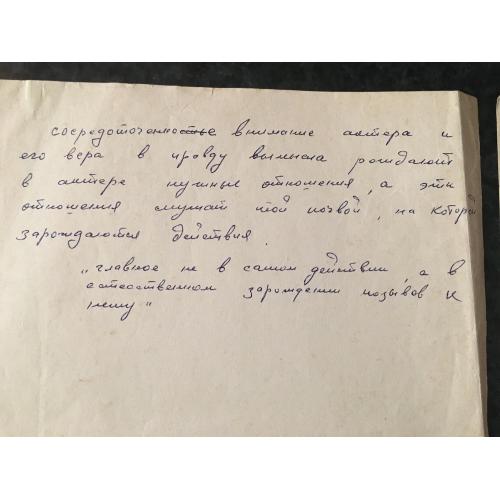 сосредоточенностье внимание актера и
его вера в правду вымысла рождают
в актере нужные отношения, а эти
отношения служат той почвой, на которой
зарождаются действия.
„главное не в самом действии, а в
естественном зарождении позывов к
нему"